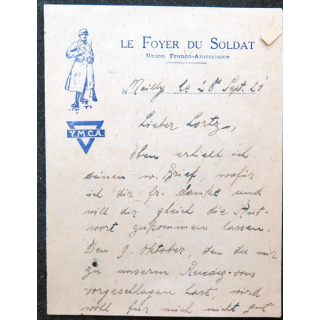 LE FOYER DU SOLDAT
Union Franco-Américaine
le Mailly le 28 Sept. 21
Y.M.C.A.
Lieber Lortz,
Eben erhielt ich
deinen w. Brief, wofür
ich dir fr. danke und
will dir gleich die Ant-
wort zukommen lassen.
Den 9. Oktober, den du mir
zu unserem Rendez-vous
vorgeschlagen hast, wird
wohl für mich nicht gut